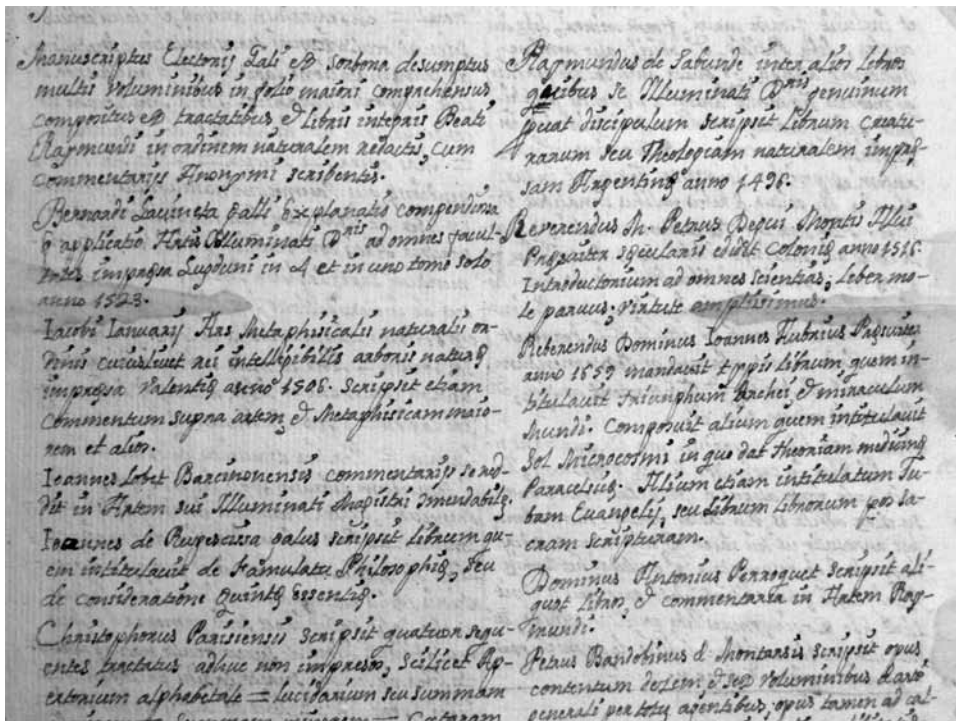 Manuscriptus Electorij Tali ex Sorbona desumptus
multis voluminibus in folio maiori comprehensus
compositus ex tractatibus & libris integris Beati
Raymundi in ordinem naturalem redactis, cum
commentarijs Anonymi scribentis.
Bernardi Lavineta Galli Explanatio compendiosa
& applicatio Artis Illuminati Dris ad omnes facul-
tates impressa Lugduni in 4 et in uno tomo solo
anno 1523.
Iacobi Ianuarij Ars Metaphisicalis naturalis or-
dinis cuiuslivet rei intelligibilis arboris naturę
impressa Valentię anno 1506. Scripsit etiam
commentum supra artem, & Metaphisicam maio-
rem et alios.
Ioannes Lobet Barcinonensis commentarijs se red-
dit in Artem sui Illuminati Magistri
Ioannes de Rupescissa Galus scripsit librum qu-
em intitulavit de Famulatu Philosophię, seu
de consideratione Quintę essentię.
Christophorus Parisiensis scripsit quatuor sequ-
entes tractatus adhuc non impressos, scilicet Ap-
ertorium alphabetale = lucidarium seu summam
Raymundus de Sabunde inter alios libros
quibus se Illuminati Dris genuinum
probat discipulum scripsit librum creatu-
rarum seu Theologiam naturalem impre-
ssam Argentinę anno 1496.
Reverendus M. Petrus Degui Montis Albi
Presviter sęcularis edidit Colonię anno 1516.
Introductorium ad omnes scientias; liber mo-
le parvus; virtute amplissimus.
Reberendus Dominus Ioannes Hubrius Presviter
anno 1659 mandavit typis librum, quem in-
titulavit triumphum Archei, & miraculum
Mundi. Composuit alium quem intitulavit
Sol Microcosmi in quo dat theoriam medicinę
Paracelsię. Alium etiam intitulatum Tu-
bam Evangelij, seu librum librorum per sa-
cram scripturam.
Dominus Antonius Perroquet scripsit ali-
quot libros, & commentaria in Artem Ray-
mundi.
Petrus Bandobinus d Montarsis scripsit opus
contentum decem & sex voluminibus d arte
generali per totũ agentibus, opus tamen ad cal-